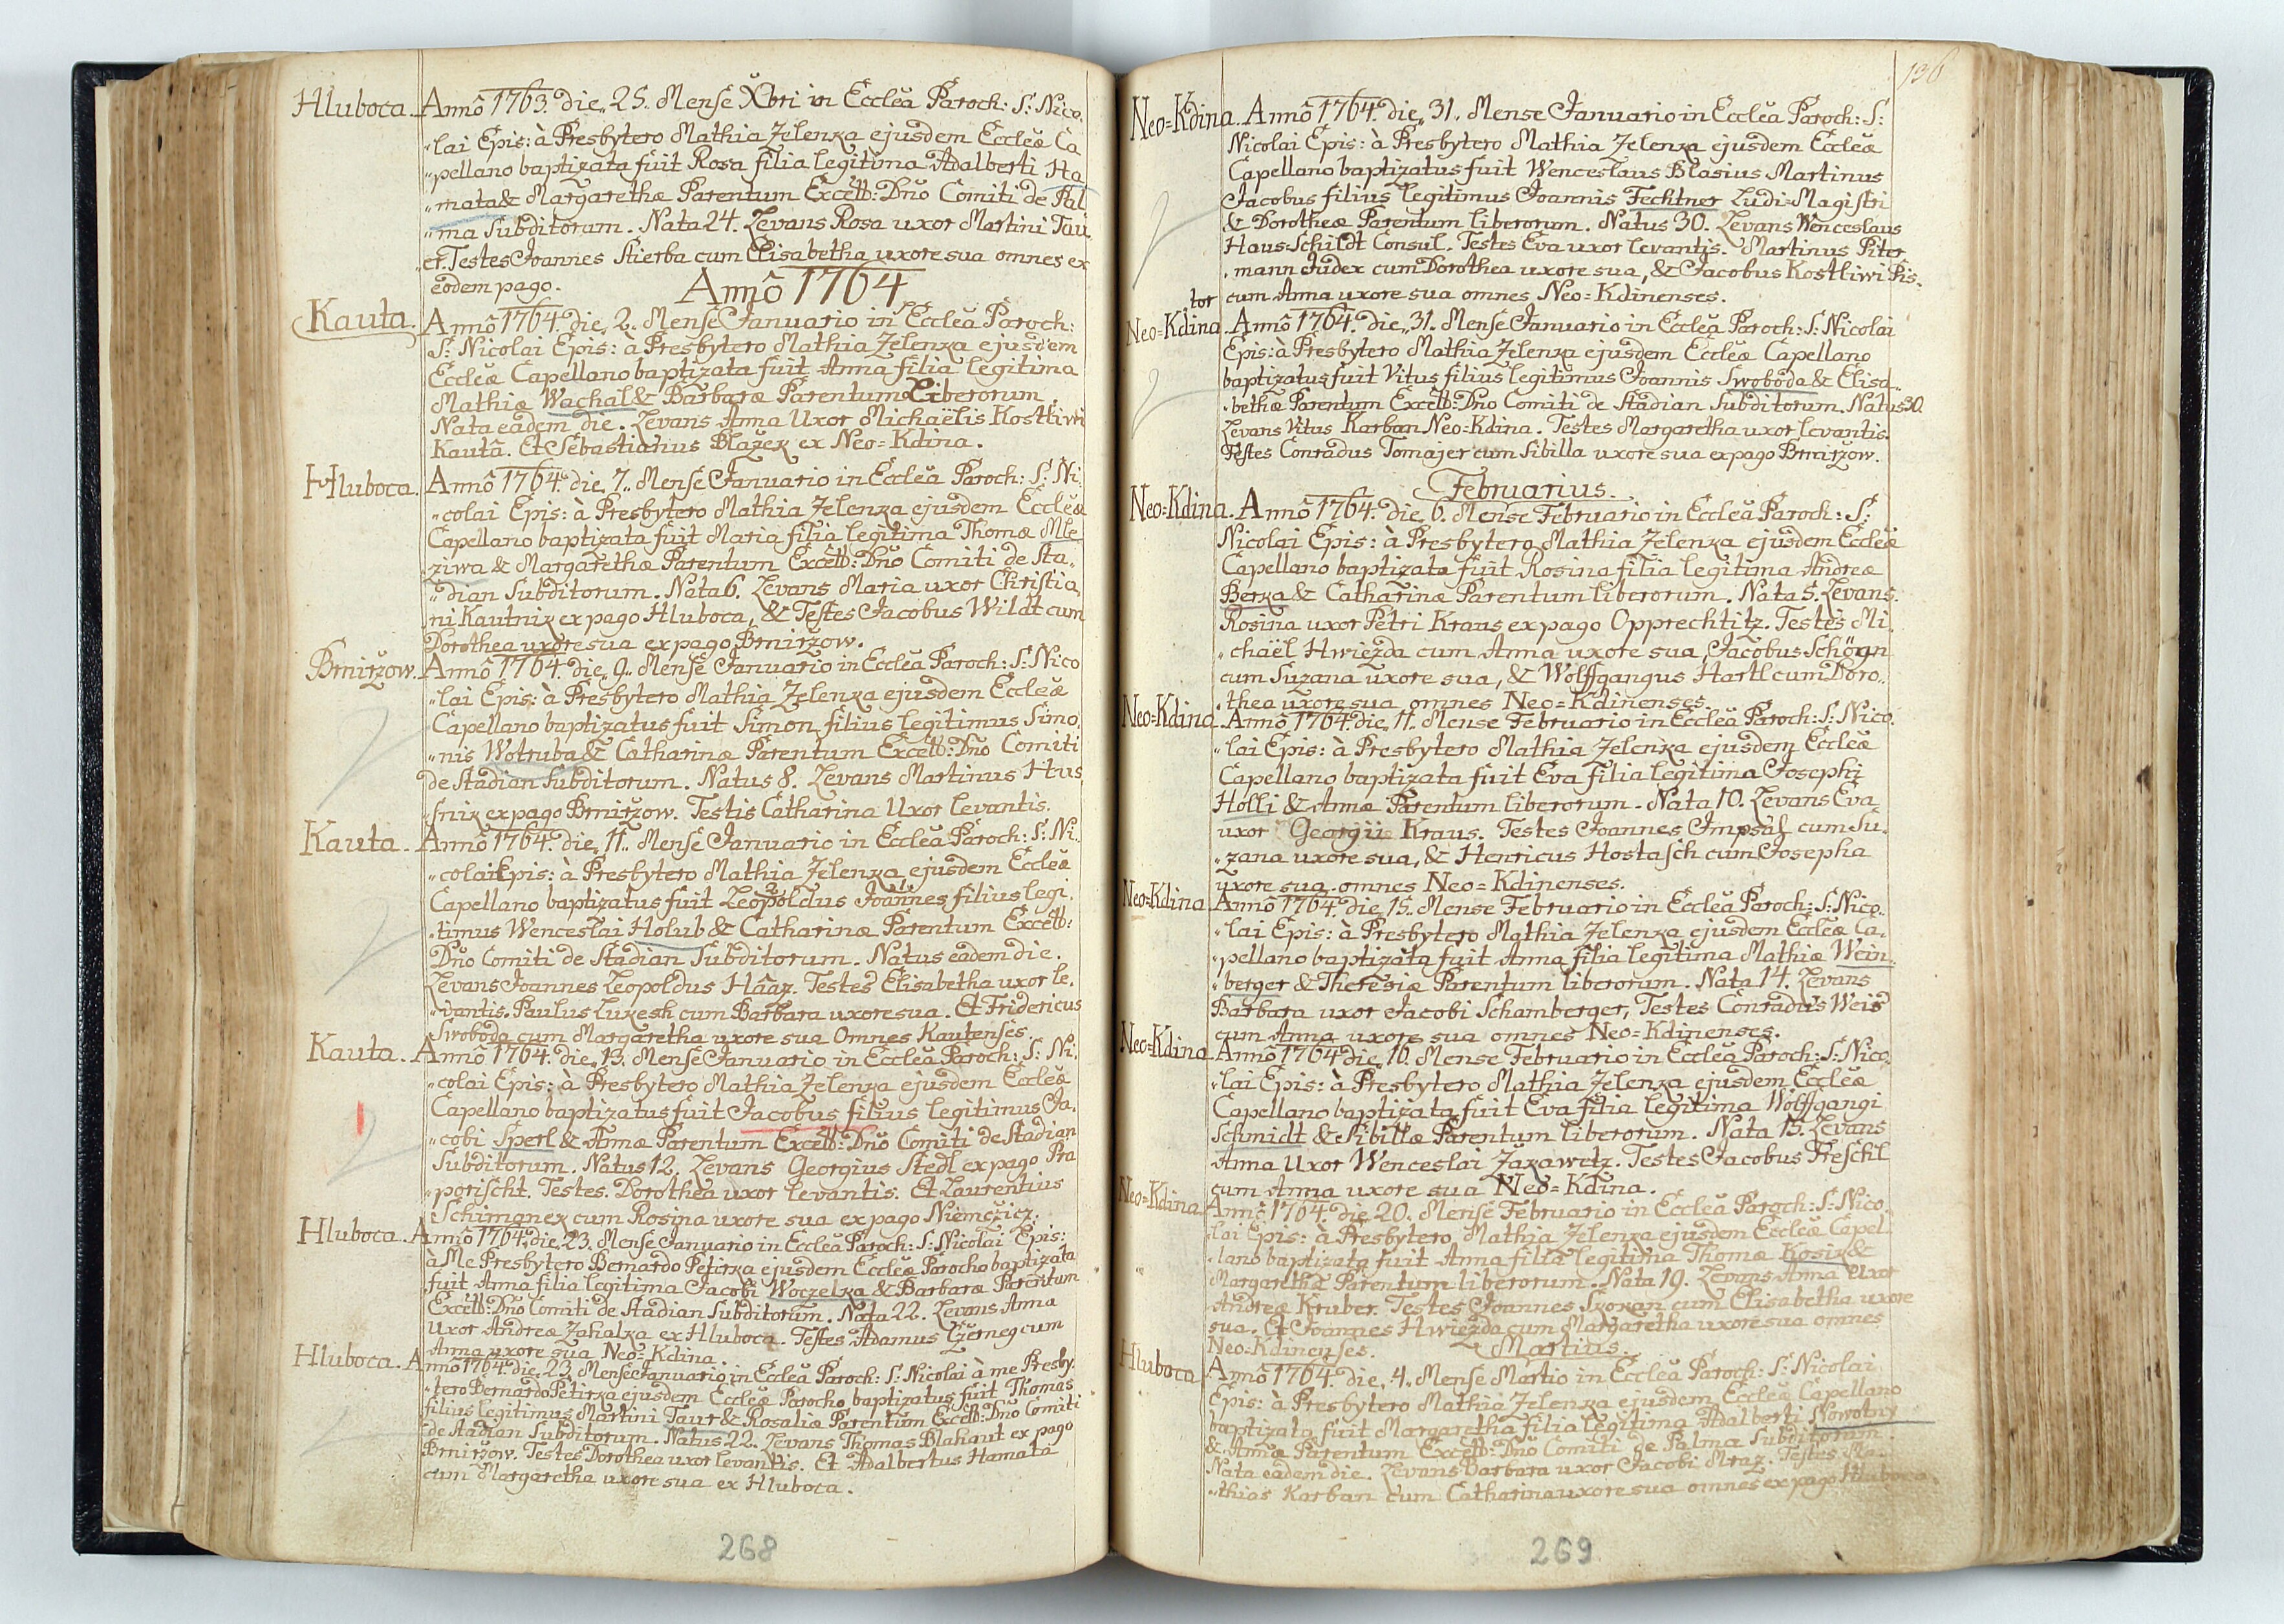 Hluboca. Annô 1763. die, 25. Mense Xbri in Eccleã Paroch: S: Nico,
"lai Epis: à Presbytero Mathia Zelenka ejusdem Eccleæ Ca
"pellano baptizata fuit Rosa filia legitima Adalberti Ha
"mata & Margarethæ Parentum Excell: Dño Comiti de Pal
"ma Subditorum. Nata 24. Levans Rosa uxor Martini Tau,
"er. Testes Joannes Stierba cum Elisabetha uxore sua omnes ex
eodem pago.
Annô 1764
Kauta. Annô 1764. die, 2. Mense Januario in Eccleã Paroch:
S: Nicolai Epis: à Presbytero Mathia Zelenka ejusdem
Eccleæ Capellano baptizata fuit Anna filia legitima
Mathiæ Wachal & Barbaræ Parentum Liberorum.
Nata eadem die. Levans Anna Uxor Michaëlis Kostliwi
Kautâ. Et Sebastianus Blažek ex Neo=Kdina.
Hluboca. Annô 1764. die, 7. Mense Januario in Eccleã Paroch: S: Ni,
"colai Epis: à Presbytero Mathia Zelenka ejusdem Eccleæ
Capellano baptizata fuit Maria filia legitima Thomæ Mle
"ziwa & Margarethæ Parentum Excell: Dño Comiti de Sta,
"dian Subditorum. Nata 6. Levans Maria uxor Christia,
ni Kautnik ex pago Hluboca, & Testes Jacobus Wildt cum
Dorothea uxore sua ex pago Brniržow.
Brniržow. Annô 1764. die, 9. Mense Januario in Eccleã Paroch: S: Nico
"lai Epis: à Presbytero Mathia Zelenka ejusdem Eccleæ
Capellano baptizatus fuit Simon filius legitimus Simo,
"nis Wotruba & Catharinæ Parentum Excell: Dño Comiti
de Stadian Subditorum. Natus 8. Levans Martinus Hus
"snik ex pago Brniržow. Testis Catharina Uxor levantis.
Kauta. Annô 1764. die, 11. Mense Januario in Eccleã Paroch: S: Ni,
"colai Epis: à Presbytero Mathia Zelenka ejusdem Eccleæ
Capellano baptizatus fuit Leopoldus Joannes filius legi,
"timus Wenceslai Holub & Catharinæ Parentum Excell:
Dño Comiti de Stadian Subditorum. Natus eadem die.
Levans Joannes Leopoldus Hâaz. Testes Elisabetha uxor le,
"vantis. Paulus Lukesch cum Barbara uxore sua. Et Fridericus
Swoboda cum Margaretha uxore sua Omnes Kautenses.
Kauta. Annô 1764. die, 13. Mense Januario in Eccleã Paroch: S: Ni,
"colai Epis: à Presbytero Mathia Zelenka ejusdem Eccleæ
Capellano baptizatus fuit Jacobus filius legitimus Ja,
"cobi Sperl & Annæ Parentum Excell: Dño Comiti de Stadian
Subditorum. Natus 12. Levans Georgius Stedl ex pago Pra
"porischt. Testes. Dorothea uxor levantis. Et Laurentius
Schimanek cum Rosina uxore sua ex pago Niemczicz.
Hluboca. Annô 1764. die, 23. Mense Januario in Eccleã Paroch: S: Nicolai Epis:
à Me Presbytero Bernardo Petirka ejusdem Eccleæ Parocho baptizata
fuit Anna filia legitima Jacobi Woczelka & Barbaræ Parentum
Excell: Dño Comiti de Stadian Subditorum. Nata 22. Levans Anna
uxor Andreæ Zahalka ex Hluboca. Testes Adamus Czerneg cum
Anna uxore sua Neo=Kdina.
Hluboca. Annô 1764. die, 23. Mense Januario in Eccleã Paroch: S: Nicolai à me Presby,
"tero Bernardo Petirka ejusdem Eccleæ Parocho baptizatus fuit Thomas
filius legitimus Martini Taur & Rosaliæ Parentum Excell: Dño Comiti
de Stadian Subditorum. Natus 22. Levans Thomas Blahaut ex pago
Brnirzow. Testes Dorothea uxor levantis. Et Adalbertus Hamata
cum Margaretha uxore sua ex Hluboca.
268
136
Neo=Kdina. Annô 1764. die, 31. Mense Januario in Eccleã Paroch: S:
Nicolai Epis: à Presbytero Mathia Zelenka ejusdem Eccleæ
Capellano baptizatus fuit Wenceslaus Blasius Martinus
Jacobus filius legitimus Joannis Fechtner Ludi=Magistri
& Dorotheæ Parentum liberorum. Natus 30. Levans Wenceslaus
Haus=Schildt Consul. Testes Eva uxor levantis. Martinus Piter
"mann Judex cum Dorothea uxore sua, & Jacobus Kostliwi Pis,
tor cum Anna uxore sua omnes Neo=Kdinenses.
Neo=Kdina. Annô 1764. die, 31. Mense Januario in Eccleã Paroch: S: Nicolai
Epis: à Presbytero Mathia Zelenka ejusdem Eccleæ Capellano
baptizatus fuit Vitus filius legitimus Joannis Swoboda & Elisa,
"bethæ Parentum Excell: Dño Comiti de Stadian Subditorum. Natus 30.
Levans Vitus Karban Neo=Kdina. Testes Margaretha uxor levantis.
Testes Conradus Tomajer cum Sibilla uxore sua ex pago Brnirzow.
Februarius.
Neo=Kdina. Annô 1764. die, 6. Mense Februario in Eccleã Paroch: S:
Nicolai Epis: à Presbytero Mathia Zelenka ejusdem Eccleæ
Capellano baptizata fuit Rosina filia legitima Andreæ
Berka & Catharinæ Parentum liberorum. Nata 5. Levans.
Rosina uxor Petri Kraus ex pago Opprechtitz. Testes Mi,
"chaël Hwiezda cum Anna uxore sua, Jacobus Schögn
cum Suzana uxore sua, & Wolffgangus Hartl cum Doro,
"thea uxore sua omnes Neo=Kdinenses.
Neo=Kdina. Annô 1764. die, 11. Mense Februario in Eccleã Paroch: S: Nico,
"lai Epis: à Presbytero Mathia Zelenka ejusdem Eccleæ
Capellano baptizata fuit Eva filia legitima Josephi
Holli & Annæ Parentum liberorum. Nata 10. Levans Eva
uxor Georgii Kraus. Testes Joannes Impsal cum Su,
"zana uxore sua, & Henricus Hostasch cum Josepha
uxore sua omnes Neo=Kdinenses.
Neo=Kdina Annô 1764. die, 15. Mense Februario in Eccleã Paroch: S: Nico,
"lai Epis: à Presbytero Mathia Zelenka ejusdem Eccleæ Ca,
"pellano baptizata fuit Anna filia legitima Mathiæ Wein,
"berger & Theresiæ Parentum liberorum. Nata 14. Levans
Barbara uxor Jacobi Schamberger, Testes Conradus Weis
cum Anna uxore sua omnes Neo=Kdinenses.
Neo=Kdina Annô 1764. die, 16. Mense Februario in Eccleã Paroch: S: Nico,
"lai Epis: à Presbytero Mathia Zelenka ejusdem Eccleæ
Capellano baptizata fuit Eva filia legitima Wolffgangi
Schmidt & Sibillæ Parentum liberorum. Nata 15. Levans
Anna Uxor Wenceslai Zakawetz. Testes Jacobus Treschl
cum Anna uxore sua Neo=Kdina.
Neo=Kdina. Annô 1764. die 20. Mense Februario in Eccleã Paroch: S: Nico,
"lai Epis: à Presbytero Mathia Zelenka ejusdem Eccleæ Capel
"lano baptizata fuit Anna filia legitima Thomæ Kosik &
Margarethæ Parentum liberorum. Nata 19. Levans Anna Uxor
Andreæ Kruber. Testes Joannes Skokan cum Elisabetha uxore
sua. Et Joannes Hwiezda cum Margaretha uxore sua omnes
Neo=Kdinenses.
Martius.
Hluboca Annô 1764. die, 4. Mense Martio in Eccleã Paroch: S: Nicolai
Epis: à Presbytero Mathia Zelenka ejusdem Eccleæ Capellano
baptizata fuit Margaretha filia legitima Adalberti Nowotny
& Annæ Parentum Excell: Dño Comiti de Palma Subditorum.
Nata eadem die. Levans Barbara uxor Jacobi Mraz. Testes Ma,
"thias Karban cum Catharina uxore sua omnes ex pago Hluboca.
269